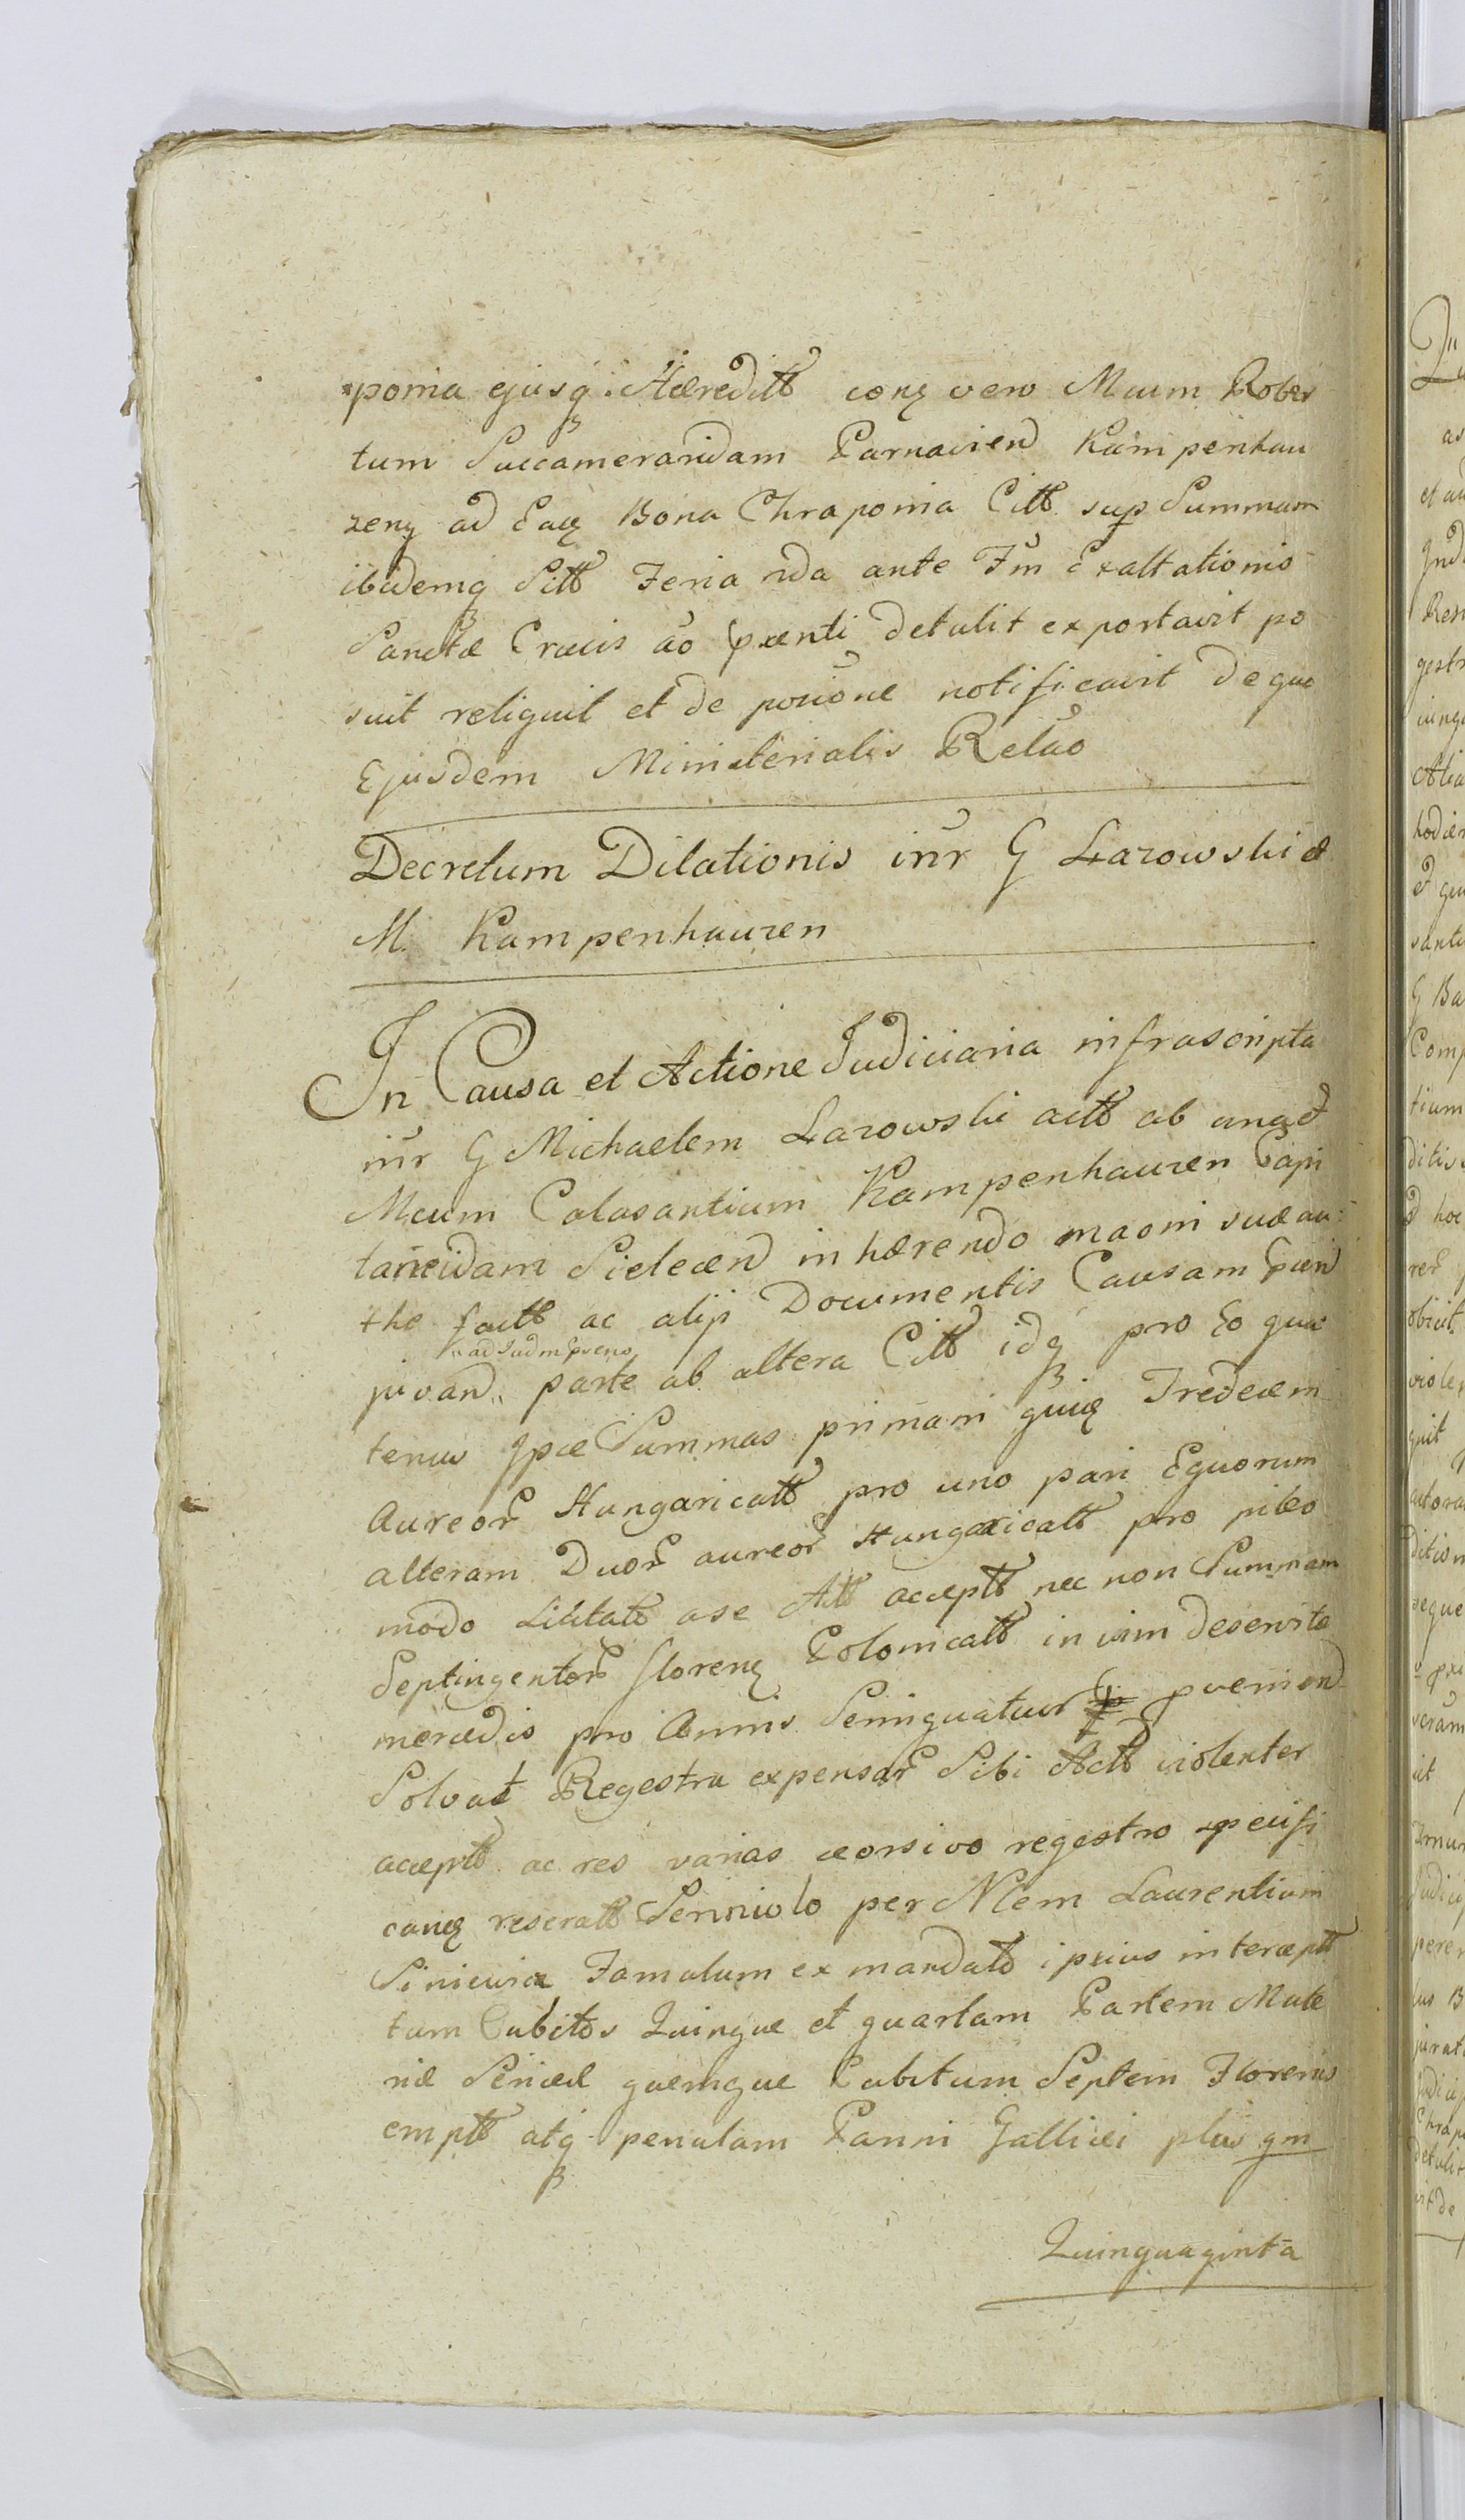 ponia ejusq3 Hæreditt conq vero Mcum Rober
tum Succamerandam Parnavien Kampenhau
zenq ad Eaq Bona Chraponia Citt sup Summam
ibidemq3 Sitt Feria 2da ante Fm Exaltationis
Sanctæ Crucis ao præntti detulit exportavit po
suit reliquit et de posiõne notificavit de quo
Ejusdem Ministerialis Relao
Decretum Dilationis inr G Łazowski et
M. Kampenhauzen
In Causa et Actione Judiciaria infrascripta
inr G Michaelem Łazowski actt ab una et
Mcum Calasantium Kampenhauzen Capi
taneidam Sielcen inhærendo maoni suæ au:
the factt ac alijs Documentis Causam præn
ad Judm præns
juvand parte ab altera Citt idq3 pro Eo qua
tenus Ipse Summas primam quiq Tredecem
Aureor Hungaricatt pro uno pari Equorum
alteram Duor aureor Hungaricatt pro pileo
modo Licitato a se Att acceptt nec non Summam
Septingentor florenq Polonicatt in vim deservitæ
mercedis pro Annis Seniquatuor p proveniend
Solvat Regestra expensar Sibi Actt violenter
acceptt ac res varias seorsivo regestro specifi
canq reseratt Scriniolo per Nlem Laurentium
Siniewicz Famulum ex mandato ipsius interceptt
tum Cubitos Quinque et quartam Partem Mate
riæ Sericeæ quemque Cubitum Septem Florenis
emptt atq3 penulam Panni Gallici plus qm
Quinquaginta